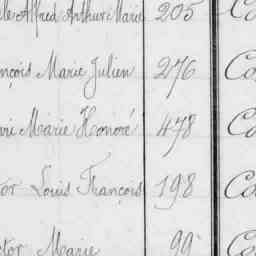 lle Alfred Arthur Marie 205 Co
nçois Marie Julien 276 Co
nri Marie Honoré 478 Co
tor Louis François 198 Co
ctor Marie 99 Co